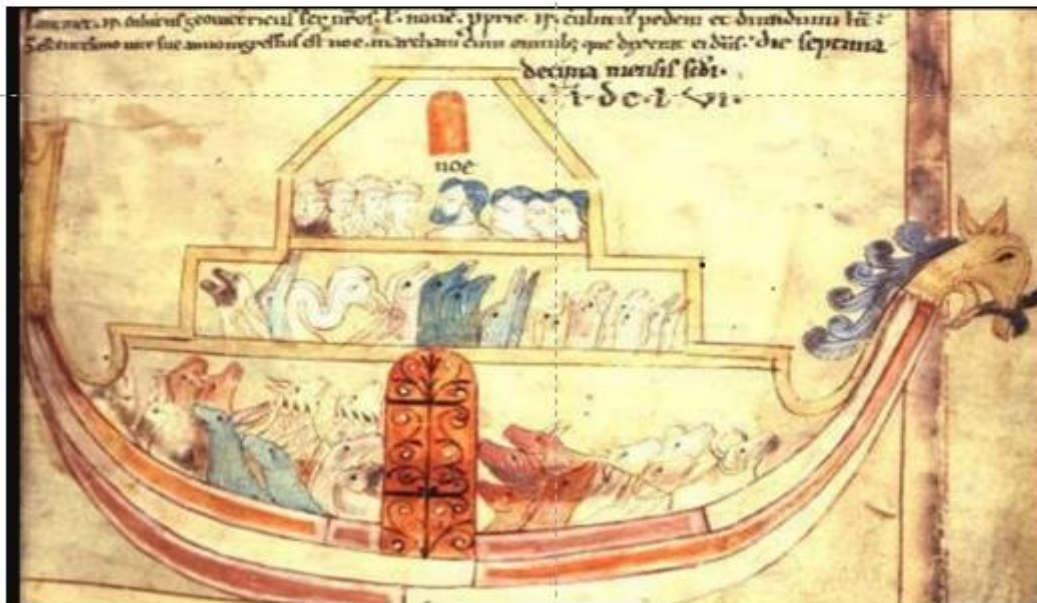 cubitus geometricus sex nr̄os. l. noue. pprie. cubitus pedem et dimidium
uite sue anno ingressus est noe. in archam cum omnibꝫ que dixerat ei dn̄s. die septima
decima mensis sc̄di.
i. dc. l vi.
noe